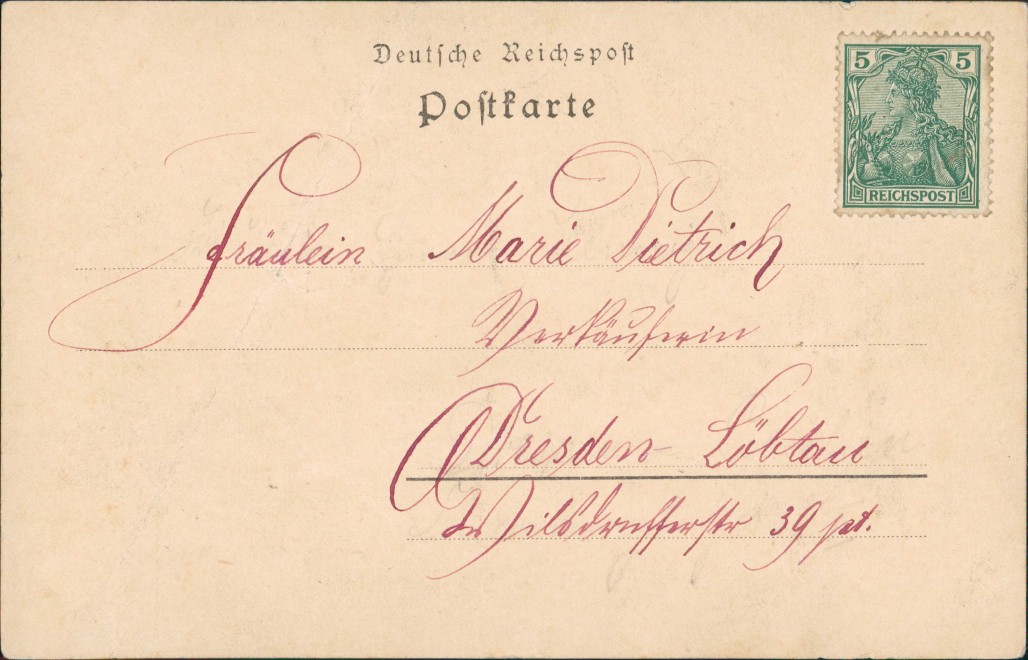 Deutsche Reichspost
Postkarte
5 5
REICHSPOST
Fräulein Marie Dietrich
Verkäuferin
Dresden-Löbtau
Wilsdrufferstr 39 pt.